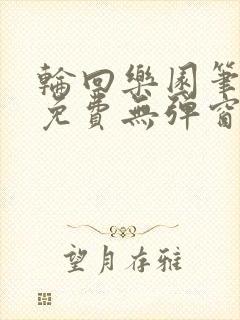 輪回樂園筆
免費無彈窗
望月存雅